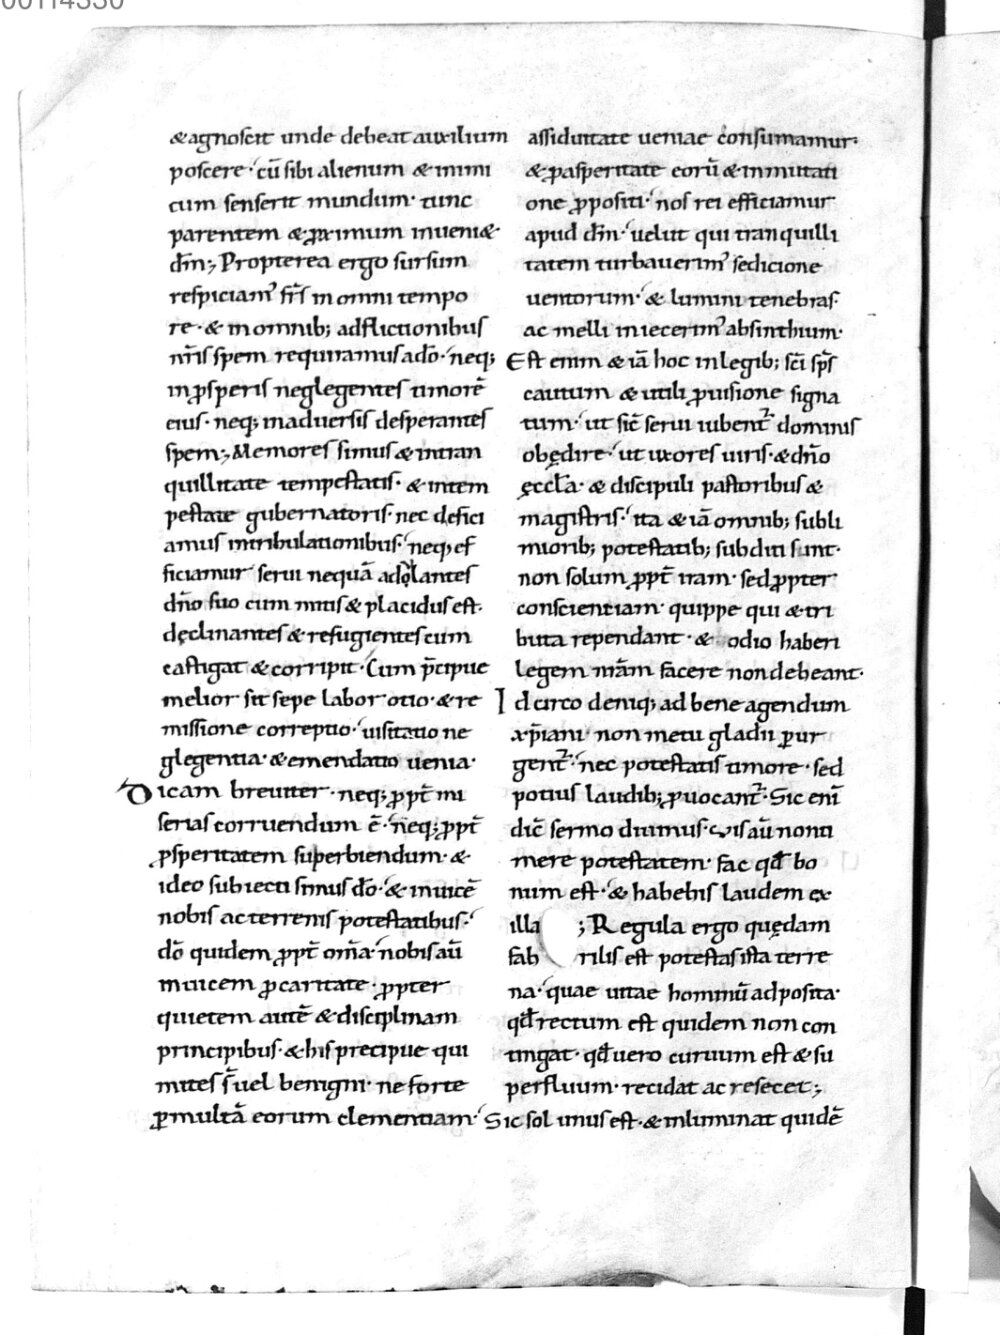 00114330
&agnoscit unde debeat auxilium
poscere· cū sibi alienum & inimi
cum senserit mundum· tunc
parentem & proximum inueni&
dm̄; Propterea ergo sursum
respiciam' fr̄s in omni tempo
re· & in omnib; adflictionibus
nr̄is spem requiramus a dō· neq;
in ꝓsperis neglegentes timorē
eius· neq; in aduersis desperantes
spem; Memores simus & in tran
quillitate tempestatis· & in tem
pestate gubernatoris· nec defici
amus in tribulationibus· neq; ef
ficiamur serui nequā adolantes
dn̄o suo cum mitis & placidus est·
dęclinantes & refugientes cum
castigat & corripit· Cum p̄cipue
melior sit sepe labor otio· & re
missione correptio· uisitatio ne
glegentia· & emendatio uenia·
Dicam breuiter· neq; ꝓpt̄ mi
serias corruendum ē· neq; ꝓpt̄
ꝓsperitatem superbiendum· &
ideo subiecti simus dō· & inuicē
nobis ac terrenis potestatibus·
dō quidem ꝓpt̄ om̄a· nobis aū
inuicem ꝓ caritate· ꝓpter
quietem autē & disciplinam
principibus· & his precipue qui
mites s̄ uel benigni· ne forte
ꝑ multā eorum clementiam·
assiduitate ueniae consumamur·
& ꝑ asperitate eorū & inmutati
one ꝓpositi· nos rei efficiamur
apud dm̄· uelut qui tranquilli
tatem turbauerim' sedicione
uentorum· & lumini tenebras·
ac melli iniecerim' absinthium·
Est enim & iā hoc in legib; sc̄i sp̄s
cautum & utili ꝓuisione signa
tum· ut sic̄ serui iubent᷑ dominis
obędire· ut uxores uiris· & dn̄o
ęccl̄a· & discipuli pastoribus &
magistris· ita & iā omnib; subli
miorib; potestatib; subditi sunt·
non solum ꝓpt̄ iram· sed ꝓpter
conscientiam· quippe qui & tri
buta rependant· & odio haberi
legem nr̄am facere non debeant·
Idcirco deniq; ad bene agendum
xp̄iani· non metu gladii ꝑur
gent᷑· nec potestatis timore· sed
potius laudib; ꝓuocant᷑· Sic enī
dic̄ sermo diuinus· Vis aū non ti
mere potestatem· fac qd̄ bo
num est· & habebis laudem ex
illa; Regula ergo quędam
fabrilis est potestas ista terre
na· quae uitae hominū adposita·
qd̄ rectum est quidem non con
tingat· qd̄ uero curuum est & su
perfluum· recidat ac resecet;
Sic sol unus est· & inluminat quidē